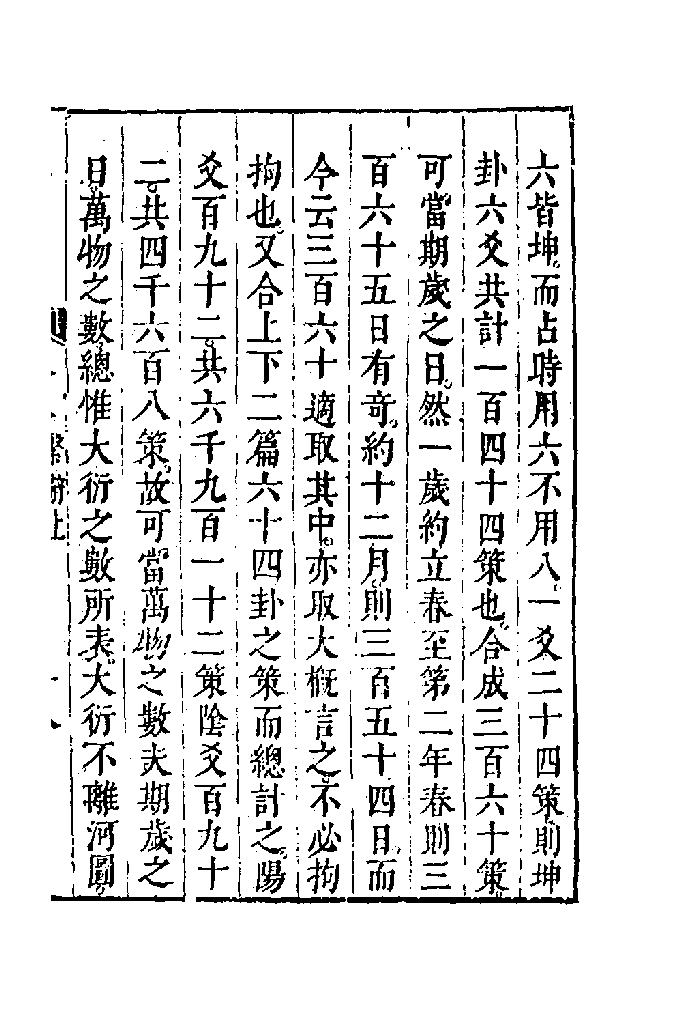 六皆坤。而占時用六不用八。一爻二十四策。則坤
卦六爻共計一百四十四策也。合成三百六十策。
可當期歲之日。然一歲約立春至第二年春則三
百六十五日有奇。約十二月。則三百五十四日。而
今云三百六十。適取其中。亦取大槪言之。不必拘
拘也。又合上下二篇六十四卦之策而總計之。陽
爻百九十二。共六千九百一十二策陰爻百九十
二。共四千六百八策。故可當萬物之數夫期歲之
日。萬物之數。總惟大衍之數所表。大衍不離河圖。
繫辭上